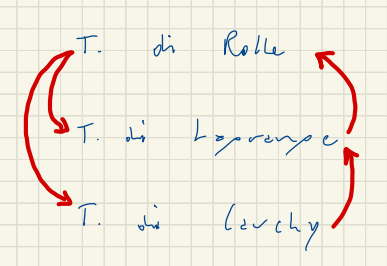 T. di Rolle
T. di Lagrange
T. di Cauchy